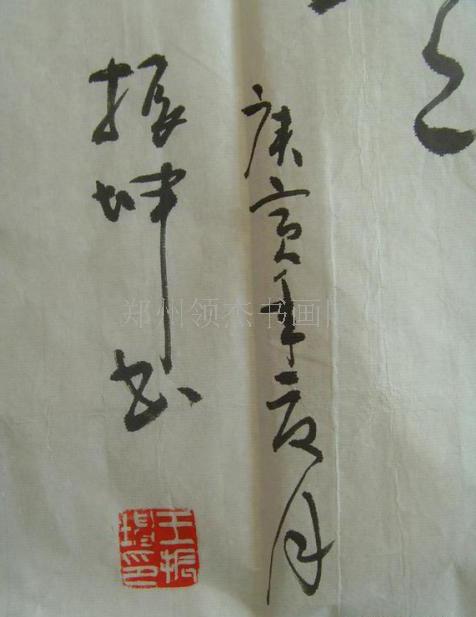 庚寅年夏月
振坤书
王振
坤印
郑州领杰书画